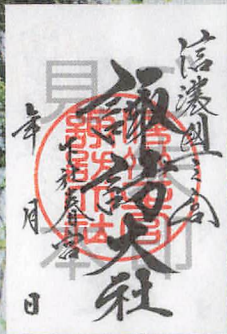 信濃國一之宮
諏訪大社
下社春宮
年 月 日
見本